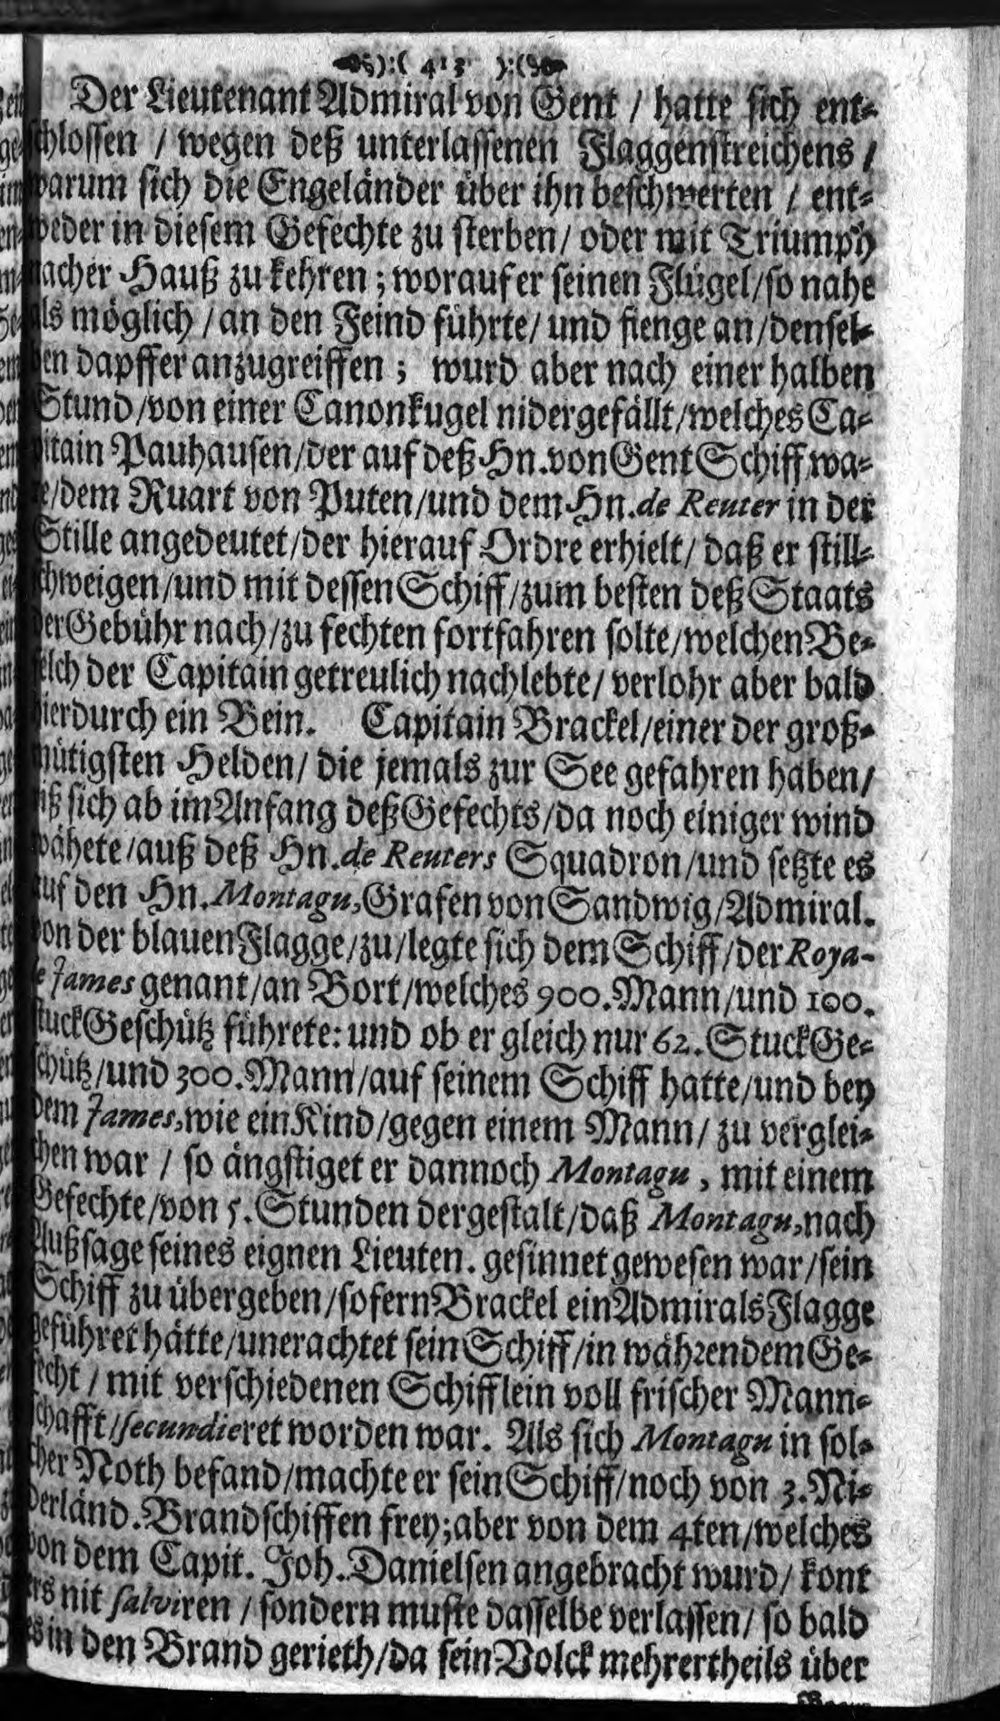 ):( 413 ):(
Der Lieutenant Admiral von Gent / hatte sich ent-
schlossen / wegen deß unterlassenen Flaggenstreichens /
warum sich die Engeländer über ihn beschwerten / ent-
weder in diesem Gefechte zu sterben / oder mit Triumph
nacher Hauß zu kehren ; worauf er seinen Flügel / so nahe
als möglich / an den Feind führte / und fienge an / densel-
ben dapffer anzugreiffen ; wurd aber nach einer halben
Stund / von einer Canonkugel nidergefällt / welches Ca-
pitain Pauhausen / der auf deß Hn. von Gent Schiff wa-
re / dem Ruart von Puten / und dem Hn. de Reuter in der
Stille angedeutet / der hierauf Ordre erhielt / daß er still-
schweigen / und mit dessen Schiff / zum besten deß Staats
der Gebühr nach / zu fechten fortfahren solte / welchen Be-
felch der Capitain getreulich nachlebte / verlohr aber bald
hierdurch ein Bein. Capitain Brackel / einer der groß-
mütigsten Helden / die jemals zur See gefahren haben /
riß sich ab im Anfang deß Gefechts / da noch einiger wind
wähete / auß deß Hn. de Reuters Squadron / und setzte es
auf den Hn. Montagu, Grafen von Sandwig / Admiral.
von der blauen Flagge / zu / legte sich dem Schiff / der Roya-
le James genant / an Bort / welches 900. Mann / und 100.
stuck Geschütz führete: und ob er gleich nur 62. Stuck Ge-
schütz / und 300. Mann / auf seinem Schiff hatte / und bey
dem James, wie ein Kind / gegen einem Mann / zu verglei-
chen war / so ängstiget er dannoch Montagu , mit einem
Gefechte / von 5. Stunden dergestalt / daß Montagu, nach
Außsage seines eignen Lieuten. gesinnet gewesen war / sein
Schiff zu übergeben / sofern Brackel ein Admirals Flagge
geführet hätte / unerachtet sein Schiff / in währendem Ge-
fecht / mit verschiedenen Schifflein voll frischer Mann-
schafft / secundieret worden war. Als sich Montagu in sol-
cher Noth befand / machte er sein Schiff / noch von 3. Ni-
derländ. Brandschiffen frey; aber von dem 4ten / welches
von dem Capit. Joh. Danielsen angebracht wurd / kont
ers nit salviren / sondern muste dasselbe verlassen / so bald
es in den Brand gerieth / da sein Volck mehrertheils über